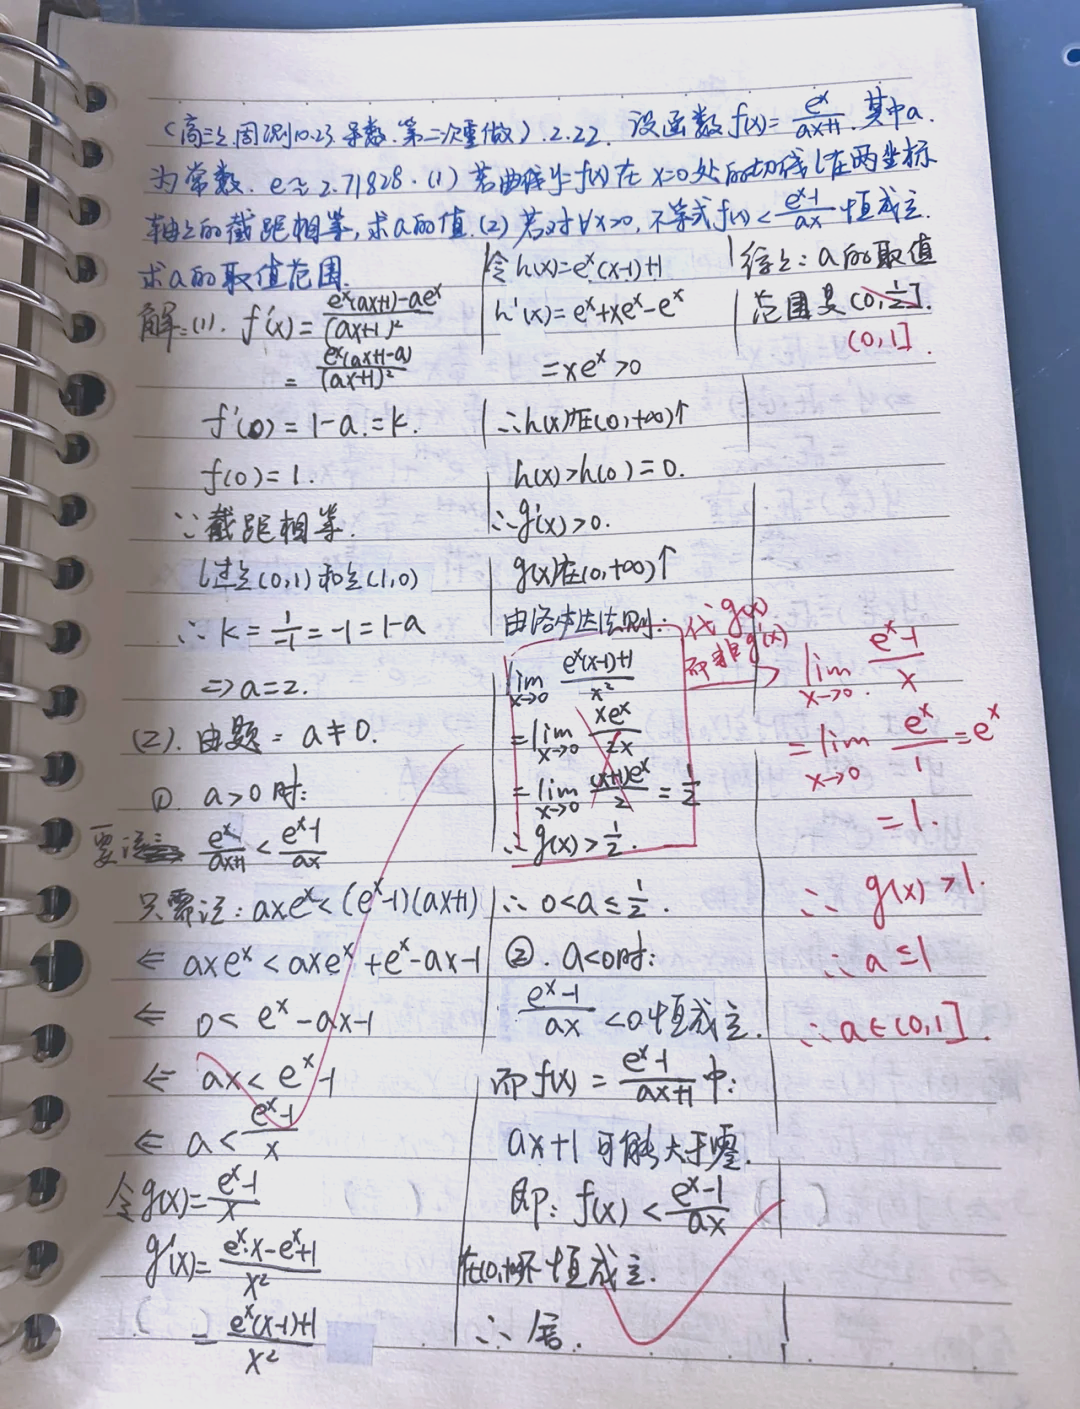 (高三上周测10.23.导数.第二次重做).2.22. 设函数f(x)=e^x/(ax+1).其中a.
为常数.e≈2.71828.(1)若曲线y=f(x)在x=0处的切线l在两坐标
轴上的截距相等,求a的值.(2)若对∀x>0,不等式f(x)<(e^x-1)/(ax)恒成立.
求a的取值范围.
解:(1). f'(x)=(e^x(ax+1)-ae^x)/(ax+1)²
=(e^x(ax+1-a))/(ax+1)²
f'(0)=1-a=k.
f(0)=1.
∵截距相等.
l过点(0,1)和点(1,0)
∴k=1/-1=-1=1-a
⇒a=2.
(2).由题=a≠0.
①. a>0时:
要证 e^x/(ax+1)<(e^x-1)/(ax)
只需证:axe^x<(e^x-1)(ax+1)
⇐ axe^x<axe^x+e^x-ax-1
⇐ 0<e^x-ax-1
⇐ ax<e^x-1
⇐ a<(e^x-1)/x
令g(x)=(e^x-1)/x
g'(x)=(e^x·x-e^x+1)/x²
=(e^x(x-1)+1)/x²
令h(x)=e^x(x-1)+1
h'(x)=e^x+xe^x-e^x
=xe^x>0
∴h(x)在(0,+∞)↑
h(x)>h(0)=0.
∴g'(x)>0.
g(x)在(0,+∞)↑
由洛必达法则:
lim x→0 (e^x(x-1)+1)/x²
=lim x→0 xe^x/2x
=lim x→0 (x+1)e^x/2=1/2
∴g(x)>1/2.
∴0<a≤1/2.
②. a<0时:
(e^x-1)/(ax)<0恒成立.
而f(x)=(e^x-1)/(ax+1)中:
ax+1可能大于零.
即:f(x)<(e^x-1)/(ax)
在(0,+∞)不恒成立.
∴舍.
综上:a的取值
范围是(0,1/2].
(0,1].
代g(x)
而非g'(x)
lim x→0 (e^x-1)/x
=lim x→0 e^x/1=e^x
=1.
∴g(x)>1.
∴a≤1
∴a∈(0,1].